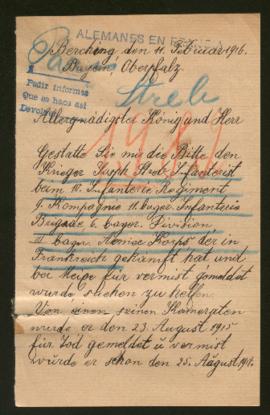 ALEMANES EN
Berching den 11. Februar 1916.
Bayern Oberpfalz
Pedir informes
Que se haos así
Devolver
Streb
Allergnädigster König und Herr
Gestatte Sie mir die Bitte den
Krieger Joseph Streb Infanterist
beim 10. Infanterie Regiment
9. Kompagnie 11. bayer. Infanterie
Brigade 6. bayer. Division,
bayr. Armee Korps der in
Frankreich gekämpft hat und
bei für vermist gemeldet
wurde, suchen zu helfen
Von einem seinen Kameraten
wurde er den 23. August 1915
für Tod gemeldet u vermist
wurde er schon den 25. August 191